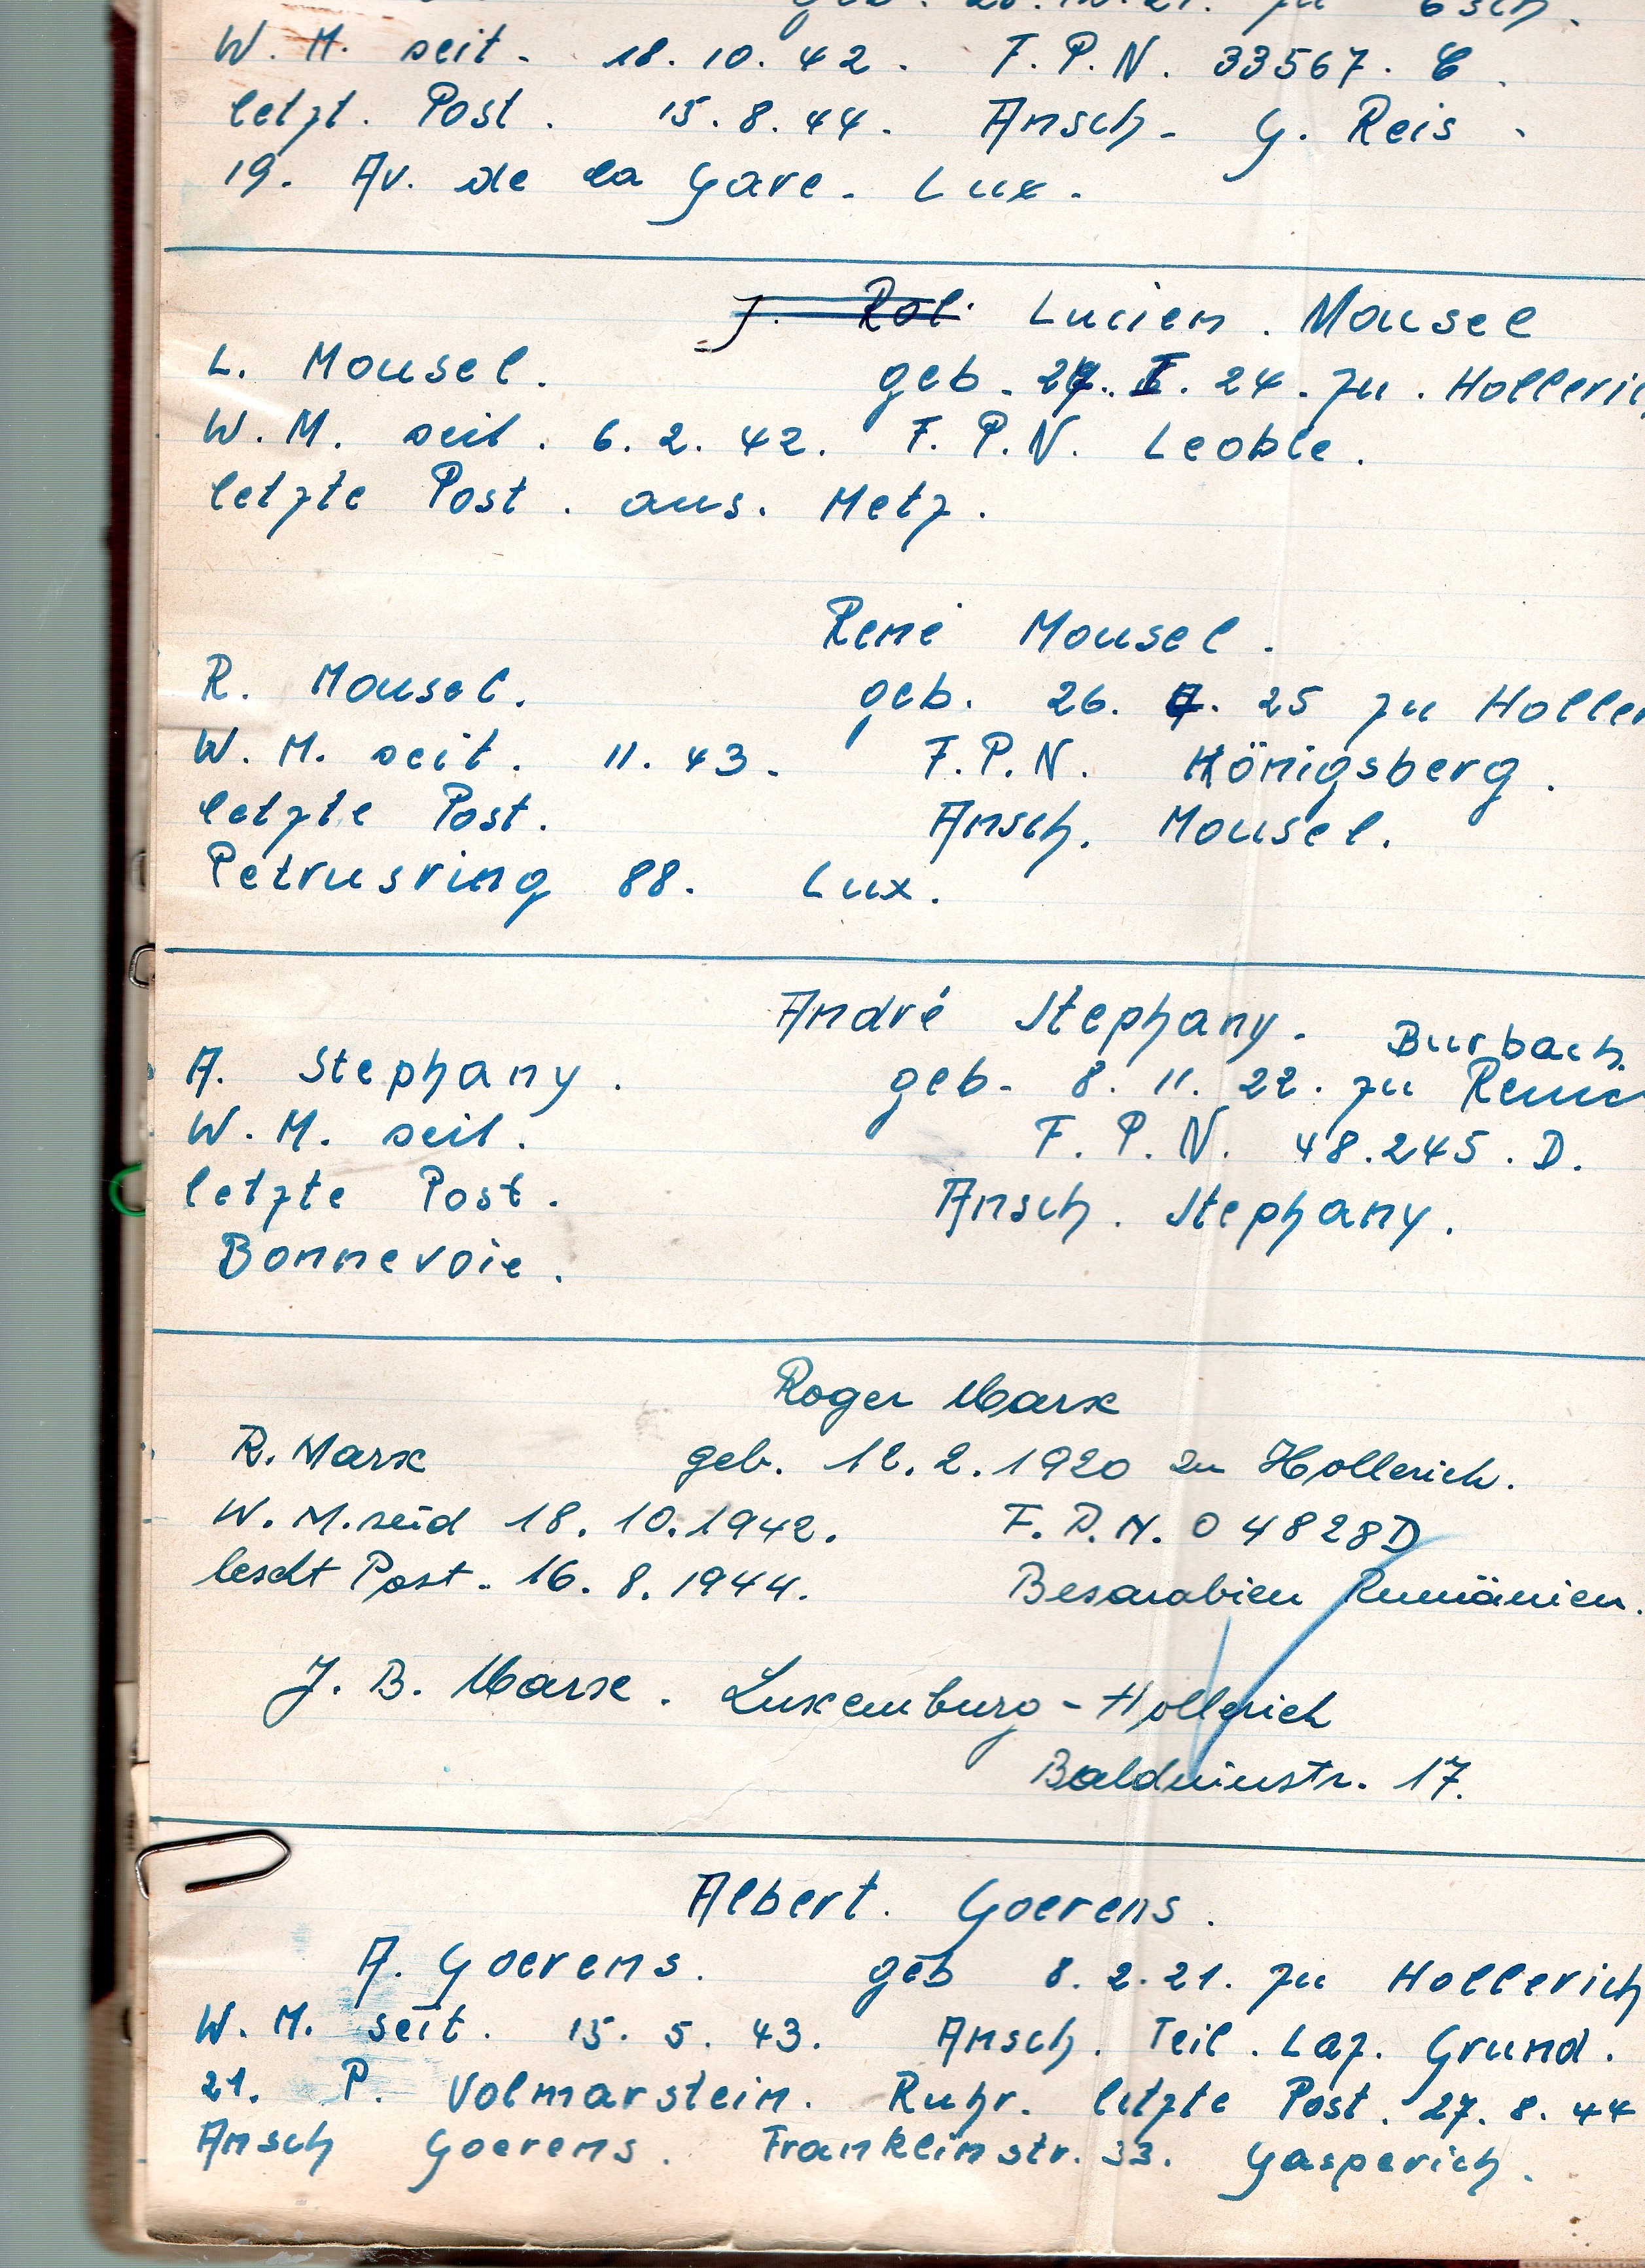 geb. 10.21. zu Esch.
W. M. seit. 18. 10. 42. F. P. N. 33567. C.
letzt. Post. 15. 8. 44. Ansch. G. Reis.
19. Av. de la Gare. Lux.
J. Lucien. Mousel
L. Mousel. geb. 24. zu. Holleri
W. M. seit. 6. 2. 42. F. P. N. Leoble.
letzte Post. aus. Metz.
René Mousel.
R. Mousel. geb. 26. 25 zu Holler
W. M. seit. 11. 43. F. P. N. Königsberg.
letzte Post. Ansch. Mousel.
Petrusring 88. Lux.
André Stephany. Burbach.
A. Stephany. geb. 8. 11. 22. zu
W. M. seit. F. P. N. 48.245. D.
letzte Post. Ansch. Stephany.
Bonnevoie.
Roger Marx
R. Marx geb. 12. 2. 1920 zu Hollerich.
W. M. seid 18. 10. 1942. F. P. N. 04828D
lescht Post. 16. 8. 1944. Besarabien Rumänien.
J. B. Marx. Luxemburg - Hollerich
Balduinstr. 17.
Albert. Goerens.
A. Goerens. geb 8. 2. 21. zu Hollerich
W. M. seit. 15. 5. 43. Ansch. Teil. Laz. Grund.
21. P. Volmarstein. Ruhr. letzte Post. 27. 8. 44
Ansch Goerens. Franklinstr. 33. Gasperich.